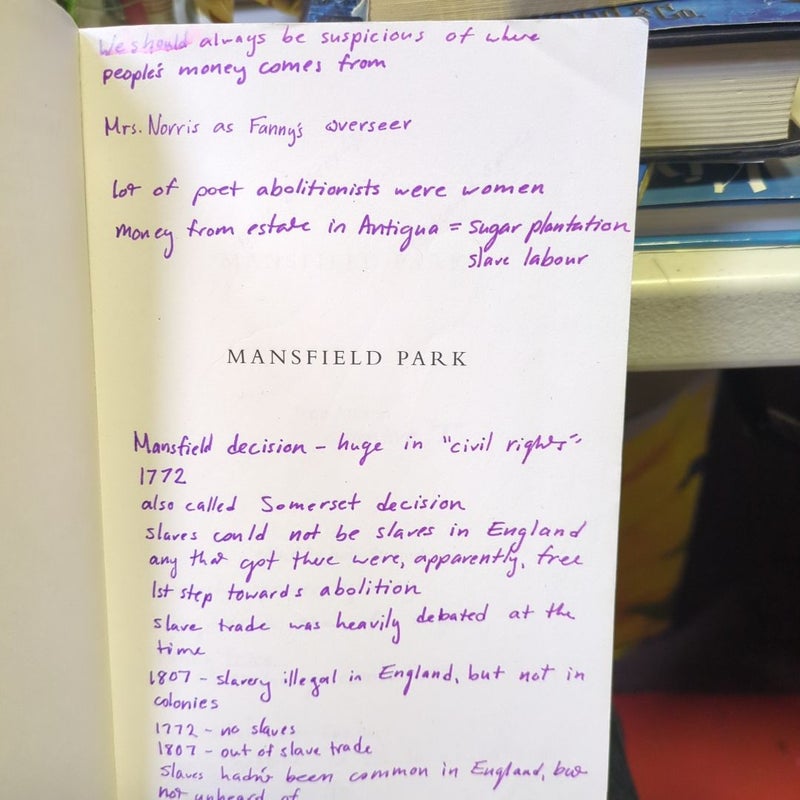 We should always be suspicious of where
people's money comes from
Mrs. Norris as Fanny's overseer
lot of poet abolitionists were women
money from estate in Antigua = sugar plantation
slave labour
MANSFIELD PARK
Mansfield decision - huge in "civil rights"
1772
also called Somerset decision
slaves could not be slaves in England
any that got there were, apparently, free
1st step towards abolition
slave trade was heavily debated at the
time
1807 - slavery illegal in England, but not in
colonies
1772 - no slaves
1807 - out of slave trade
slaves hadn't been common in England, but
not unheard of
& Co.